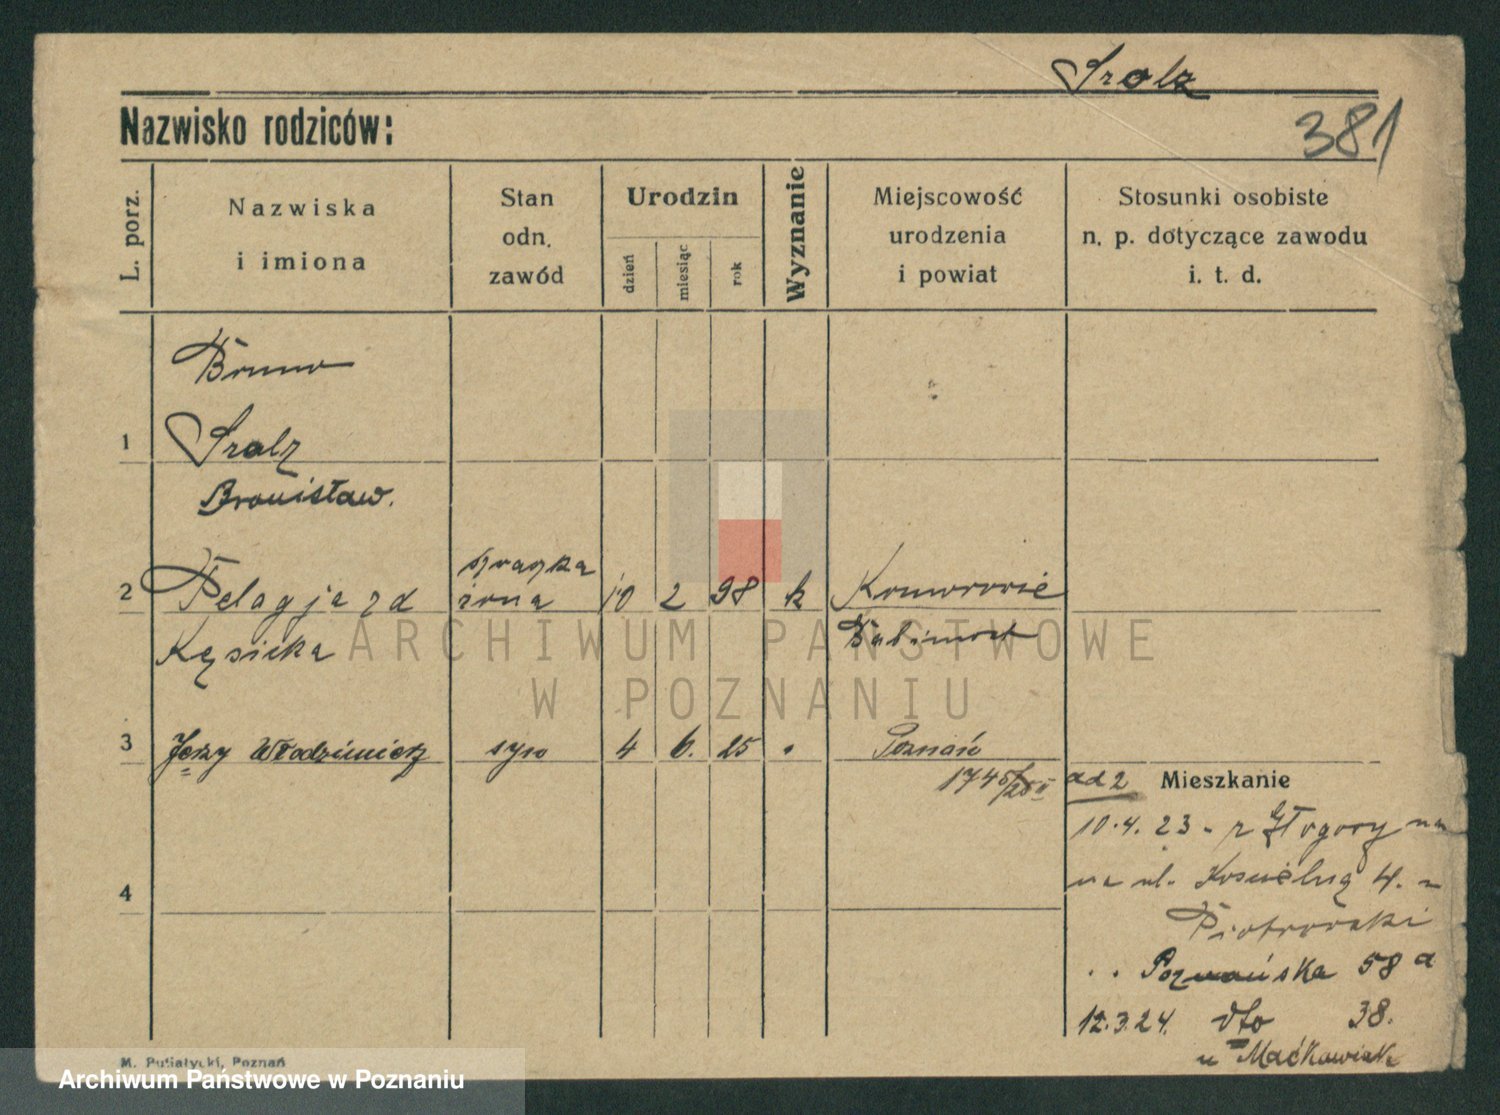 Srolz
Nazwisko rodziców:
381
L. porz.
Nazwiska
i imiona
Stan
odn.
zawód
Urodzin
dzień
miesiąc
rok
Wyznanie
Miejscowość
urodzenia
i powiat
Stosunki osobiste
n. p. dotyczące zawodu
i. t. d.
Bruno
1 Srolz
Bronisław.
2 Pelagja zd żona 10 2 98 k
Kęsicka
3 Jerzy Włodzimierz syn 4 6. 25 Poznań
1745/25 II
ad 2 Mieszkanie
10.4.23 - z
na ul. Kościelną 4. -
Piotrowski
. . Poznańska 58 a
12.3.24. dto 38.
u Maćkowiak
4
ARCHIWUM PAŃSTWOWE
W POZNANIU
M. Putiatycki, Poznań
Archiwum Państwowe w Poznaniu